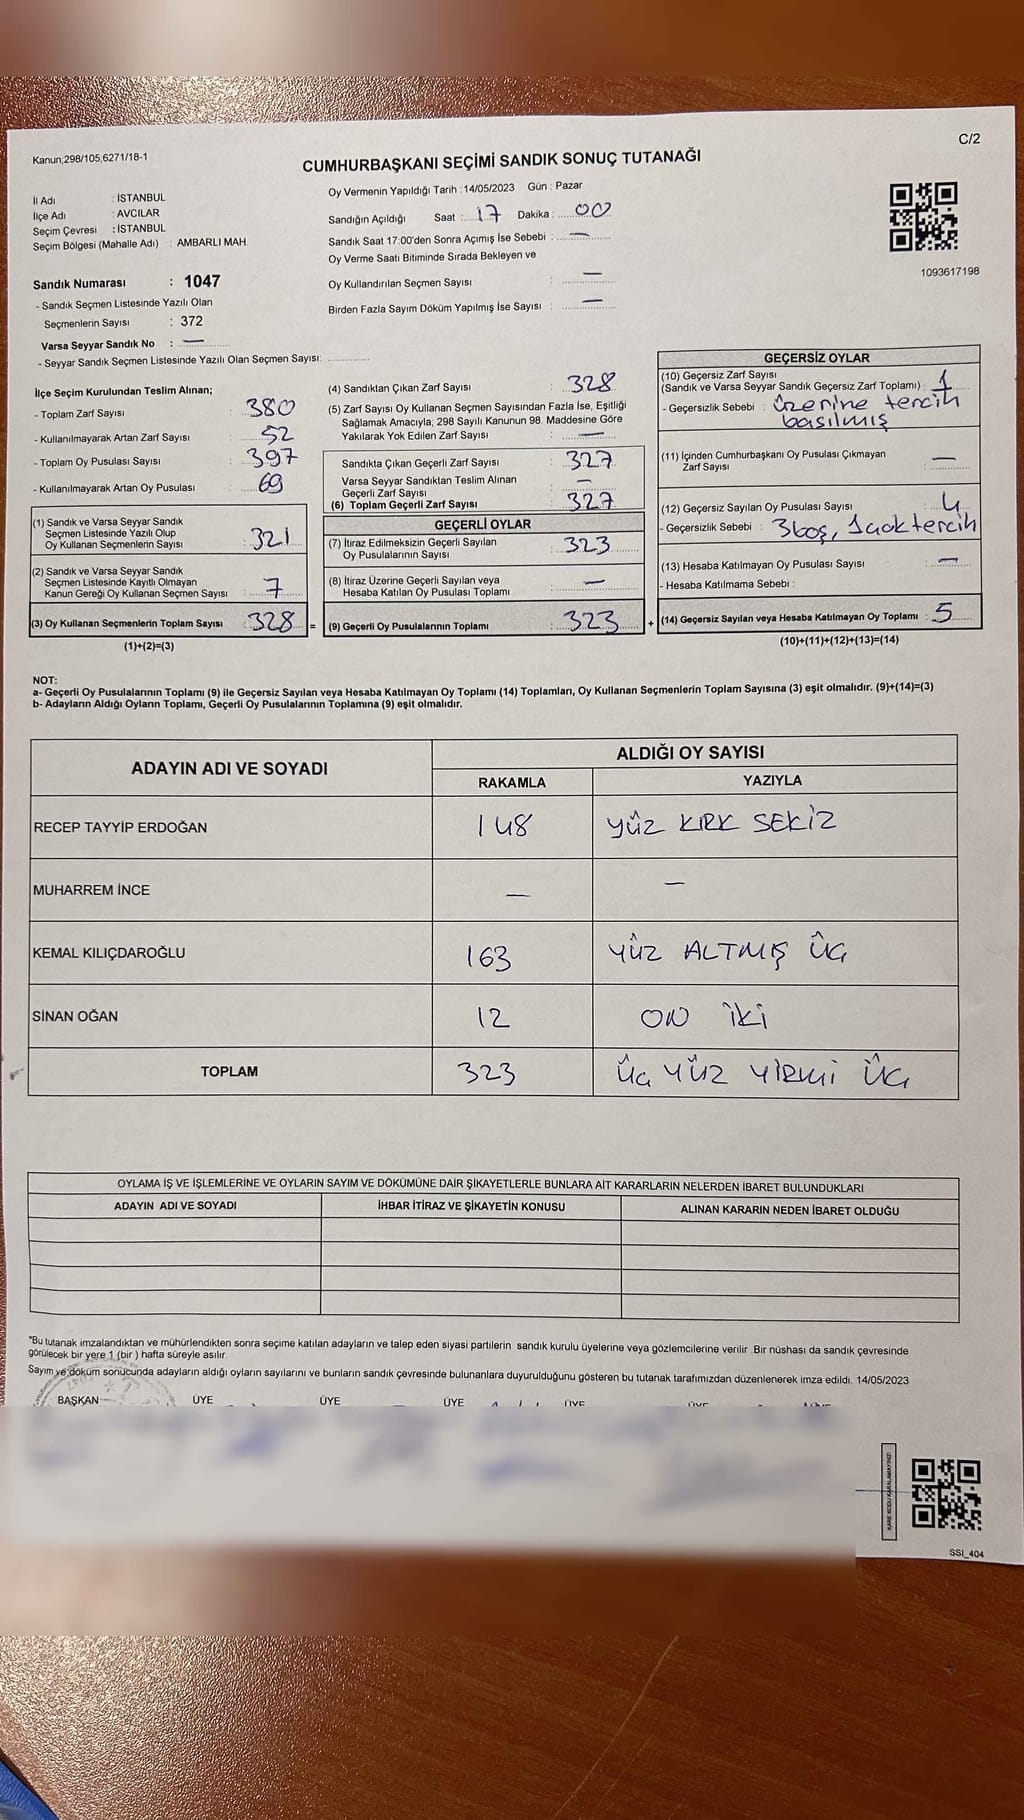 C/2
Kanun;298/105,6271/18-1
CUMHURBAŞKANI SEÇİMİ SANDIK SONUÇ TUTANAĞI
İl Adı : İSTANBUL
İlçe Adı : AVCILAR
Seçim Çevresi : İSTANBUL
Seçim Bölgesi (Mahalle Adı) : AMBARLI MAH.
Sandık Numarası : 1047
- Sandık Seçmen Listesinde Yazılı Olan
Seçmenlerin Sayısı : 372
Varsa Seyyar Sandık No : —
- Seyyar Sandık Seçmen Listesinde Yazılı Olan Seçmen Sayısı: ..............
Oy Vermenin Yapıldığı Tarih : 14/05/2023 Gün : Pazar
Sandığın Açıldığı Saat : 17 Dakika : 00
Sandık Saat 17:00'den Sonra Açımış İse Sebebi : —
Oy Verme Saati Bitiminde Sırada Bekleyen ve
Oy Kullandırılan Seçmen Sayısı : —
Birden Fazla Sayım Döküm Yapılmış İse Sayısı : —
1093617198
İlçe Seçim Kurulundan Teslim Alınan;
- Toplam Zarf Sayısı : 380
- Kullanılmayarak Artan Zarf Sayısı : 52
- Toplam Oy Pusulası Sayısı : 397
- Kullanılmayarak Artan Oy Pusulası : 69
(1) Sandık ve Varsa Seyyar Sandık
Seçmen Listesinde Yazılı Olup
Oy Kullanan Seçmenlerin Sayısı : 321
(2) Sandık ve Varsa Seyyar Sandık
Seçmen Listesinde Kayıtlı Olmayan
Kanun Gereği Oy Kullanan Seçmen Sayısı : 7
(3) Oy Kullanan Seçmenlerin Toplam Sayısı : 328 =
(1)+(2)=(3)
(4) Sandıktan Çıkan Zarf Sayısı : 328
(5) Zarf Sayısı Oy Kullanan Seçmen Sayısından Fazla İse, Eşitliği
Sağlamak Amacıyla; 298 Sayılı Kanunun 98. Maddesine Göre
Yakılarak Yok Edilen Zarf Sayısı : —
Sandıkta Çıkan Geçerli Zarf Sayısı : 327
Varsa Seyyar Sandıktan Teslim Alınan
Geçerli Zarf Sayısı : —
(6) Toplam Geçerli Zarf Sayısı : 327
GEÇERLİ OYLAR
(7) İtiraz Edilmeksizin Geçerli Sayılan
Oy Pusulalarının Sayısı : 323
(8) İtiraz Üzerine Geçerli Sayılan veya
Hesaba Katılan Oy Pusulası Toplamı : —
(9) Geçerli Oy Pusulalarının Toplamı : 323 +
GEÇERSİZ OYLAR
(10) Geçersiz Zarf Sayısı
(Sandık ve Varsa Seyyar Sandık Geçersiz Zarf Toplamı) : 1
- Geçersizlik Sebebi : üzerine tercih
basılmış
(11) İçinden Cumhurbaşkanı Oy Pusulası Çıkmayan
Zarf Sayısı : —
(12) Geçersiz Sayılan Oy Pusulası Sayısı : 4
- Geçersizlik Sebebi : 3boş, 1çok tercih
(13) Hesaba Katılmayan Oy Pusulası Sayısı : —
- Hesaba Katılmama Sebebi :
(14) Geçersiz Sayılan veya Hesaba Katılmayan Oy Toplamı : 5
(10)+(11)+(12)+(13)=(14)
NOT:
a- Geçerli Oy Pusulalarının Toplamı (9) ile Geçersiz Sayılan veya Hesaba Katılmayan Oy Toplamı (14) Toplamları, Oy Kullanan Seçmenlerin Toplam Sayısına (3) eşit olmalıdır. (9)+(14)=(3)
b- Adayların Aldığı Oyların Toplamı, Geçerli Oy Pusulalarının Toplamına (9) eşit olmalıdır.
ADAYIN ADI VE SOYADI ALDIĞI OY SAYISI
RAKAMLA YAZIYLA
RECEP TAYYİP ERDOĞAN 148 YÜZ KIRK SEKİZ
MUHARREM İNCE — —
KEMAL KILIÇDAROĞLU 163 YÜZ ALTMIŞ ÜÇ
SİNAN OĞAN 12 ON İKİ
TOPLAM 323 ÜÇ YÜZ YİRMİ ÜÇ
OYLAMA İŞ VE İŞLEMLERİNE VE OYLARIN SAYIM VE DÖKÜMÜNE DAİR ŞİKAYETLERLE BUNLARA AİT KARARLARIN NELERDEN İBARET BULUNDUKLARI
ADAYIN ADI VE SOYADI İHBAR İTİRAZ VE ŞİKAYETİN KONUSU ALINAN KARARIN NEDEN İBARET OLDUĞU
*Bu tutanak imzalandıktan ve mühürlendikten sonra seçime katılan adayların ve talep eden siyasi partilerin sandık kurulu üyelerine veya gözlemcilerine verilir .Bir nüshası da sandık çevresinde
görülecek bir yere 1 (bir ) hafta süreyle asılır.
Sayım ve döküm sonucunda adayların aldığı oyların sayılarını ve bunların sandık çevresinde bulunanlara duyurulduğunu gösteren bu tutanak tarafımızdan düzenlenerek imza edildi. 14/05/2023
BAŞKAN ÜYE ÜYE ÜYE ÜYE
KARE KODU KARALAMAYINIZ!
SSI_404